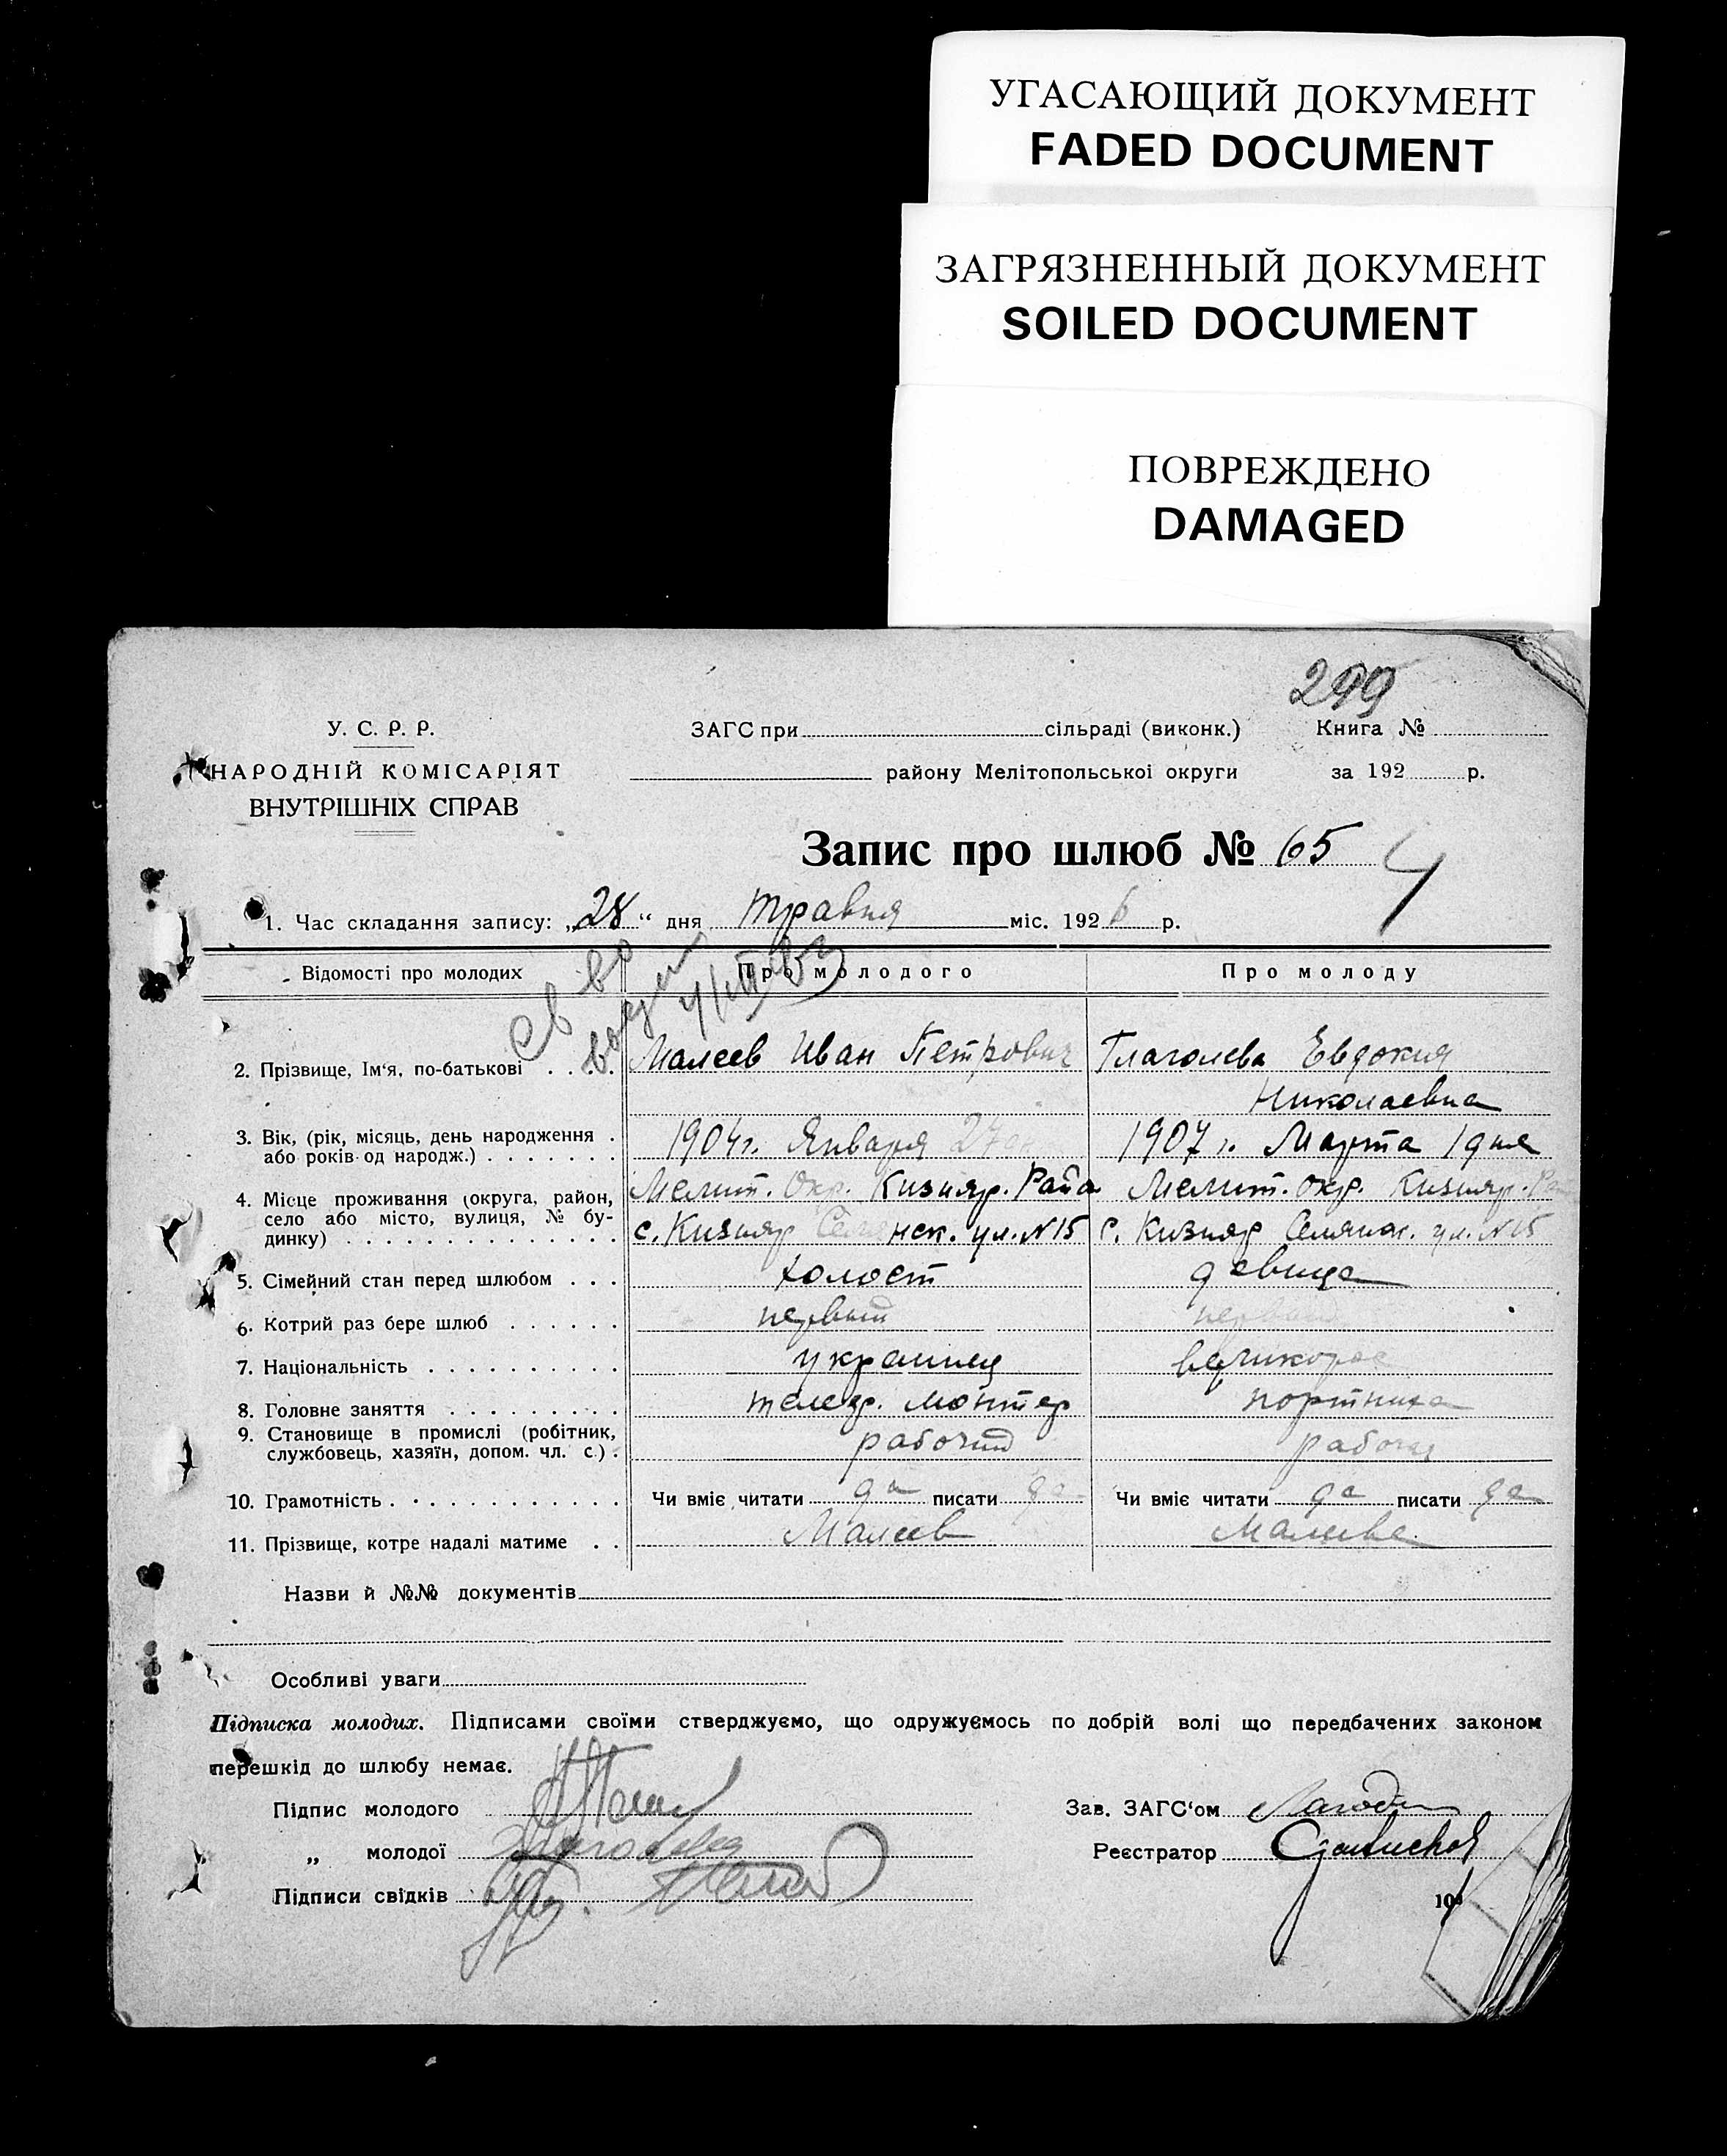 УГАСАЮЩИЙ ДОКУМЕНТ
FADED DOCUMENT
ЗАГРЯЗНЕННЫЙ ДОКУМЕНТ
SOILED DOCUMENT
ПОВРЕЖДЕНО
DAMAGED
299
У. С. Р. Р.
НАРОДНІЙ КОМІСАРІЯТ
ВНУТРІШНІХ СПРАВ
ЗАГС при сільраді (виконк.) Книга №
району Мелітопольської округи за 192 р.
Запис про шлюб № 65
4
1. Час складання запису: „28“ дня травня міс. 1926 р.
Відомості про молодих Про молодого Про молоду
2. Прізвище, Ім‘я, по-батькові Малеев Иван Петрович Глаголева Евдокия
Николаевна
3. Вік, (рік, місяць, день народження або років од народж.) 1904 г. Января 27 1907 г. Марта 1 дня
4. Місце проживання (округа, район, село або місто, вулиця, № будинку) Мелит. Окр. Кизияр. Райо Мелит. окр. Кизияр.
с. Кизияр Селянск. ул. N 15 с. Кизияр Селянск. ул. N 15
5. Сімейний стан перед шлюбом холост девица
6. Котрий раз бере шлюб первый первый
7. Національність украинец великорос
8. Головне заняття телегр. монтер портниха
9. Становище в промислі (робітник, службовець, хазяїн, допом. чл. с.) рабочий рабочая
10. Грамотність Чи вміє читати да писати да Чи вміє читати да писати да
11. Прізвище, котре надалі матиме Малеев Малеева
Назви й №№ документів
Особливі уваги
Підписка молодих. Підписами своїми стверджуємо, що одружуємось по добрій волі що передбачених законом
перешкід до шлюбу немає.
Підпис молодого
Зав. ЗАГС‘ом
„ молодої Глаголева
Реєстратор
Підписи свідків